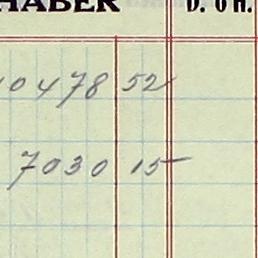 HABER D. ó H.
10478 52
7030 15